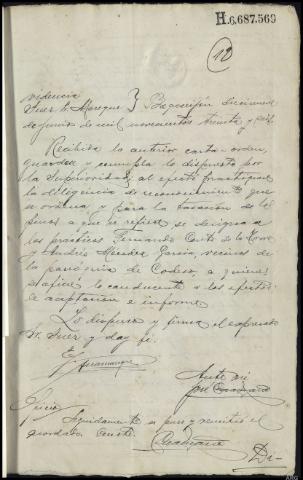 H.6.687.560
10
videncia
Juez Sr. Marque } Boqueijón diecinueve
de junio de mil novecientos treinta y seis.
Recibida la anterior carta-orden
guardese y cumpla lo dispuesto por
la Superioridad; al efecto practíquese
la diligencia de reconocimiento que
se ordena y para la tasación de las
fincas a que se refiere se designa a
los prácticos Fernando Coito de la Torre
y Andrés Méndez García, vecinos de
la parroquia de Codeso, a quienes
se oficie lo conducente a los efectos
de aceptación e informe.
Lo dispuso y firma el expresado
Sr. Juez y doy fe.
Ante mí
José
Seguidamente se puso y remitió el
acordado. Conste.
Di-